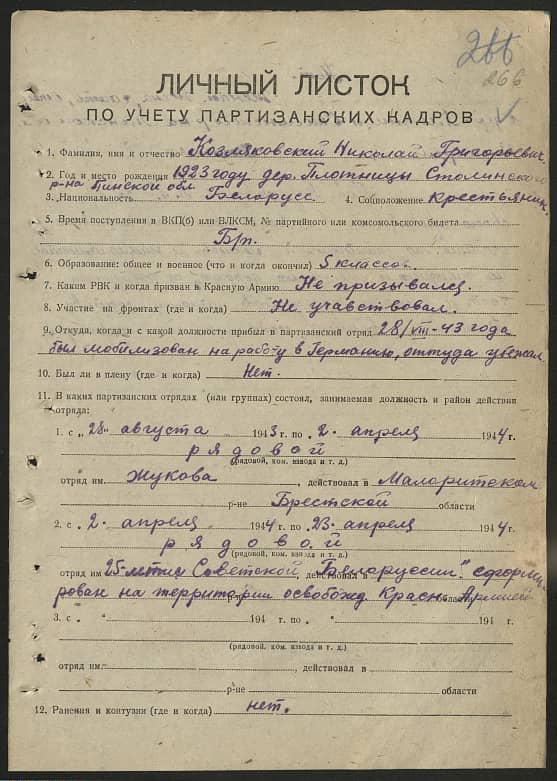 266
266
ЛИЧНЫЙ ЛИСТОК
ПО УЧЕТУ ПАРТИЗАНСКИХ КАДРОВ
1. Фамилия, имя и отчество Козляковский Николай Григорьевич
2. Год и место рождения 1923 году дер. Плотницы Столинского
р-на Пинской обл.
3. Национальность Беларусс 4. Соцположение крестьянин
5. Время поступления в ВКП(б) или ВЛКСМ, № партийного или комсомольского билета
Б/п.
6. Образование: общее и военное (что и когда окончил) 5 классов.
7. Каким РВК и когда призван в Красную Армию Не призывался
8. Участие на фронтах (где и когда) Не учавствовал.
9. Откуда, когда и с какой должности прибыл в партизанский отряд 28/VIII-43 года
был мобилизован на работу в Германию, оттуда убежал
10. Был ли в плену (где и когда) Нет.
11. В каких партизанских отрядах (или группах) состоял, занимаемая должность и район действия
отряда:
1. с „28" августа 1943 г. по „2. апреля 1944 г.
рядовой
(рядовой, ком. взвода и т. д.)
отряд им. Жукова, действовал в Малоритском
р-не Брестской области
2. с „2. апреля 1944 г. по „23. апреля 1944 г.
рядовой
(рядовой, ком. взвода и т. д.)
отряд им 25-летие Советской, действовал в Белоруссии". сформи-
рован на территории освобожд. Красн. Армией
области
3. с „ " 194 г. по „ " 194 г.
(рядовой, ком. взвода и т. д.)
отряд им. , действовал в
р-не области
12. Ранения и контузии (где и когда) нет.